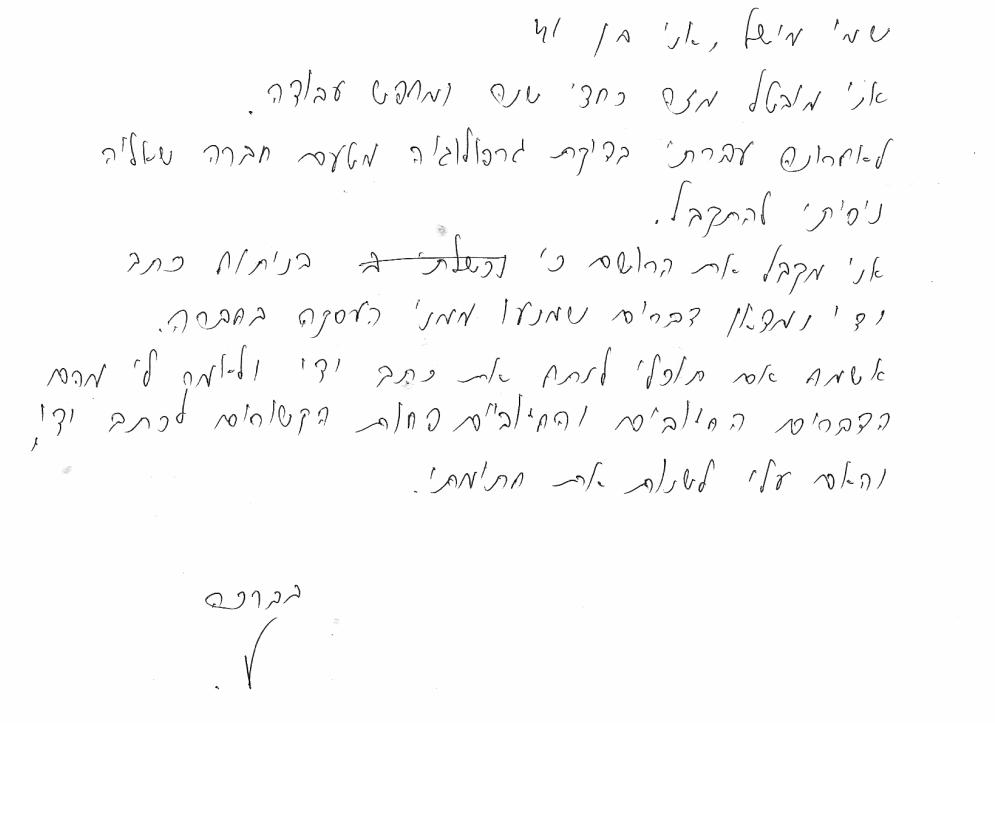 שמי מישל, אני בן 41
אני מובטל מזה כחצי שנה ומחפש עבודה.
לאחרונה עברתי בדיקת גרפולוגיה מטעם חברה שאליה
ניסיתי להתקבל.
אני מקבל את הרושם כי נכשלתי ב בניתוח כתב
ידי ונמצאו דברים שמנעו ממני העסקה בחברה.
אשמח אם תוכלי לנתח את כתב ידי ולאמר לי מהם
הדברים החיוביים והחיוביים פחות הקשורים לכתב ידי,
והאם עלי לשנות את חתימתי.
בברכה